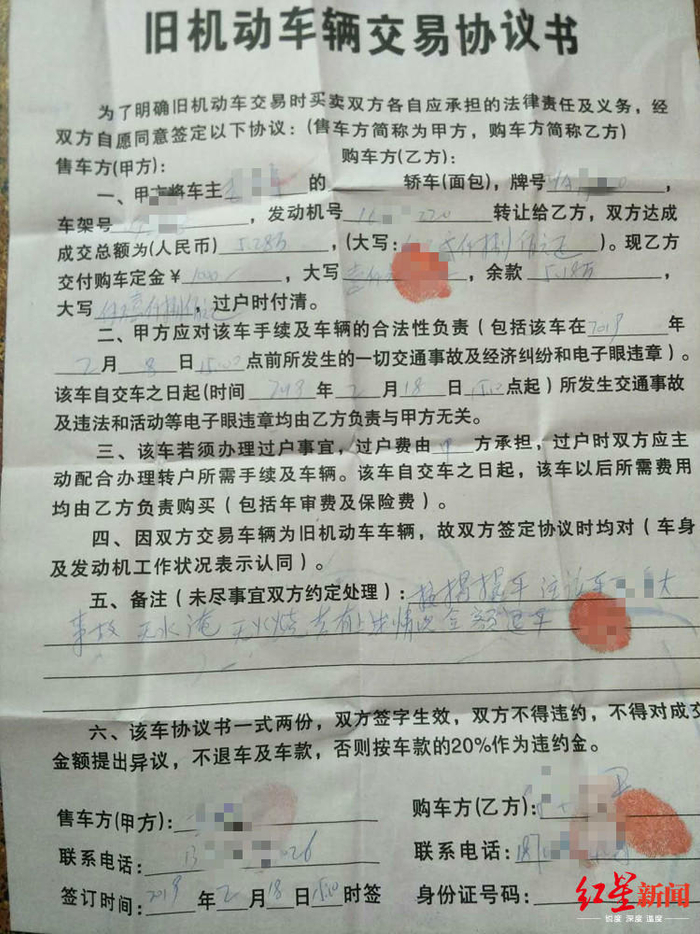 旧机动车辆交易协议书
为了明确旧机动车交易时买卖双方各自应承担的法律责任及义务，经
双方自愿同意签定以下协议：(售车方简称为甲方，购车方简称乙方)
售车方(甲方)： 购车方(乙方)：
一、甲方将车主 的 轿车(面包)，牌号 ，
车架号 ，发动机号 转让给乙方，双方达成
成交总额为(人民币) 5.28万 ，(大写： )。现乙方
交付购车定金￥ 1000 ，大写 ，余款 5.18万 ，
大写 ，过户时付清。
二、甲方应对该车手续及车辆的合法性负责（包括该车在 2019 年
2 月 18 日 15:00 点前所发生的一切交通事故及经济纠纷和电子眼违章）。
该车自交车之日起(时间 2019 年 2 月 18 日 点起）所发生交通事故
及违法和活动等电子眼违章均由乙方负责与甲方无关。
三、该车若须办理过户事宜，过户费由 甲 方承担，过户时双方应主
动配合办理转户所需手续及车辆。该车自交车之日起，该车以后所需费用
均由乙方负责购买（包括年审费及保险费）。
四、因双方交易车辆为旧机动车车辆，故双方签定协议时均对（车身
及发动机工作状况表示认同）。
五、备注（未尽事宜双方约定处理）： 大
事故 无水淹 无火烧 情况全额退车
六、该车协议书一式两份，双方签字生效，双方不得违约，不得对成交
金额提出异议，不退车及车款，否则按车款的20%作为违约金。
售车方(甲方)： 购车方(乙方)：
联系电话： 13 026 联系电话： 187
签订时间： 2019 年 2 月 18 日 时签 身份证号码：
红星新闻
锐度 深度 温度